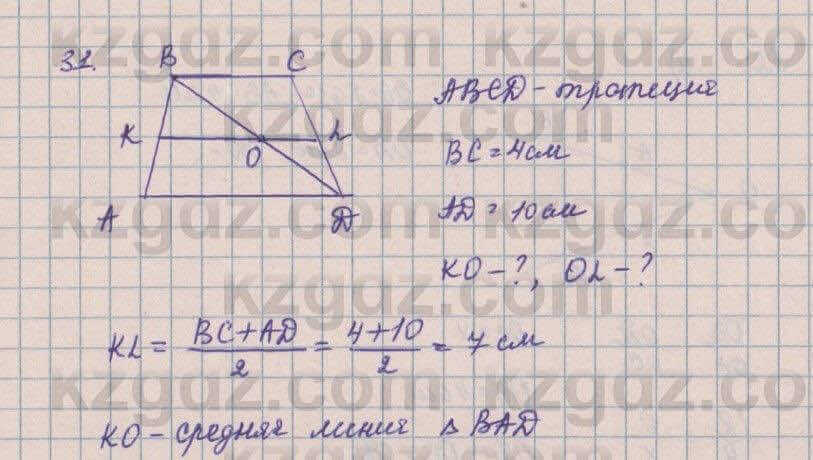 31.
B C
K O L
A D
ABCD - трапеция
BC = 4 см
AD = 10 см
KO - ?, OL - ?
KL = (BC + AD)/2 = (4 + 10)/2 = 7 см
KO - средняя линия △ BAD
kzgdz.com kzgdz.com
kzgdz.com
kzgdz.com kzgdz.com
kzgdz.com
kzgdz.com kzgdz.com